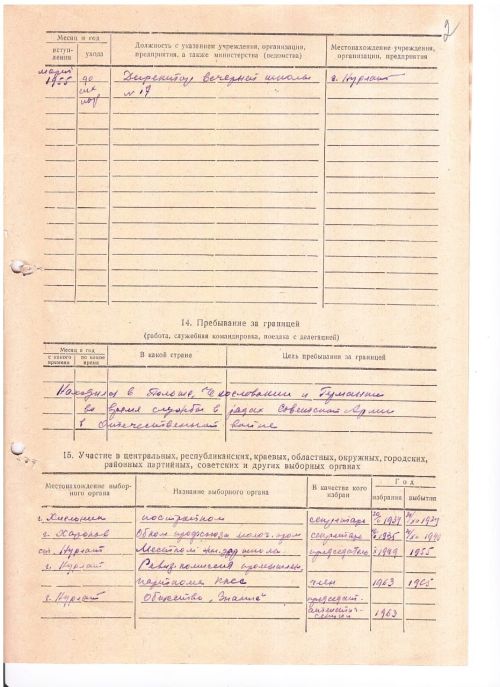 2
Месяц и год
вступления
ухода
Должность с указанием учреждения, организации, предприятия, а также министерства (ведомства)
Местонахождение учреждения, организации, предприятия
1955 до
Директор вечерней школы г. Нурлат
№ 17
14. Пребывание за границей
(работа, служебная командировка, поездка с делегацией)
Месяц и год
с какого времени
по какое время
В какой стране
Цель пребывания за границей
Находился в Польше, Чехословакии и Румынии
во время службы в рядах Советской Армии
в Отечественной войне
15. Участие в центральных, республиканских, краевых, областных, окружных, городских,
районных партийных, советских и других выборных органах
Местонахождение выборного органа
Название выборного органа
В качестве кого избран
Год
избрания
выбытия
г. Хмельник секретарь
г. Харьков Обком профсоюза секретарь 1935
ст. Нурлат Местком школа председатель 1949 1955
г. Нурлат Ревиз. комиссия
парткома КПСС член 1963 1965
г. Нурлат Общество "Знание" председат.
1963